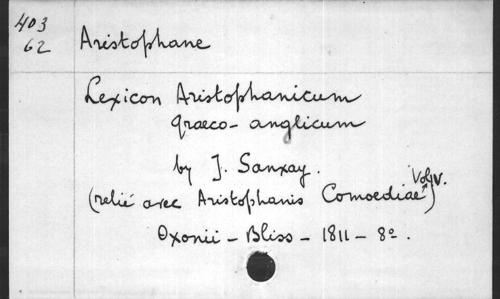 403
62
Aristophane
Lexicon Aristophanicum
graeco-anglicum
by J. Sanxay.
(relié avec Aristophanis Comoediae Vol. IV.)
Oxonii - Bliss - 1811 - 8º.